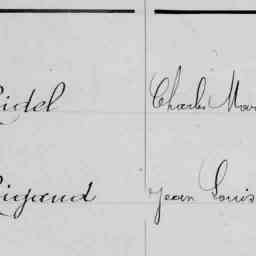 idel Charles Mar
igaud Jean Louis